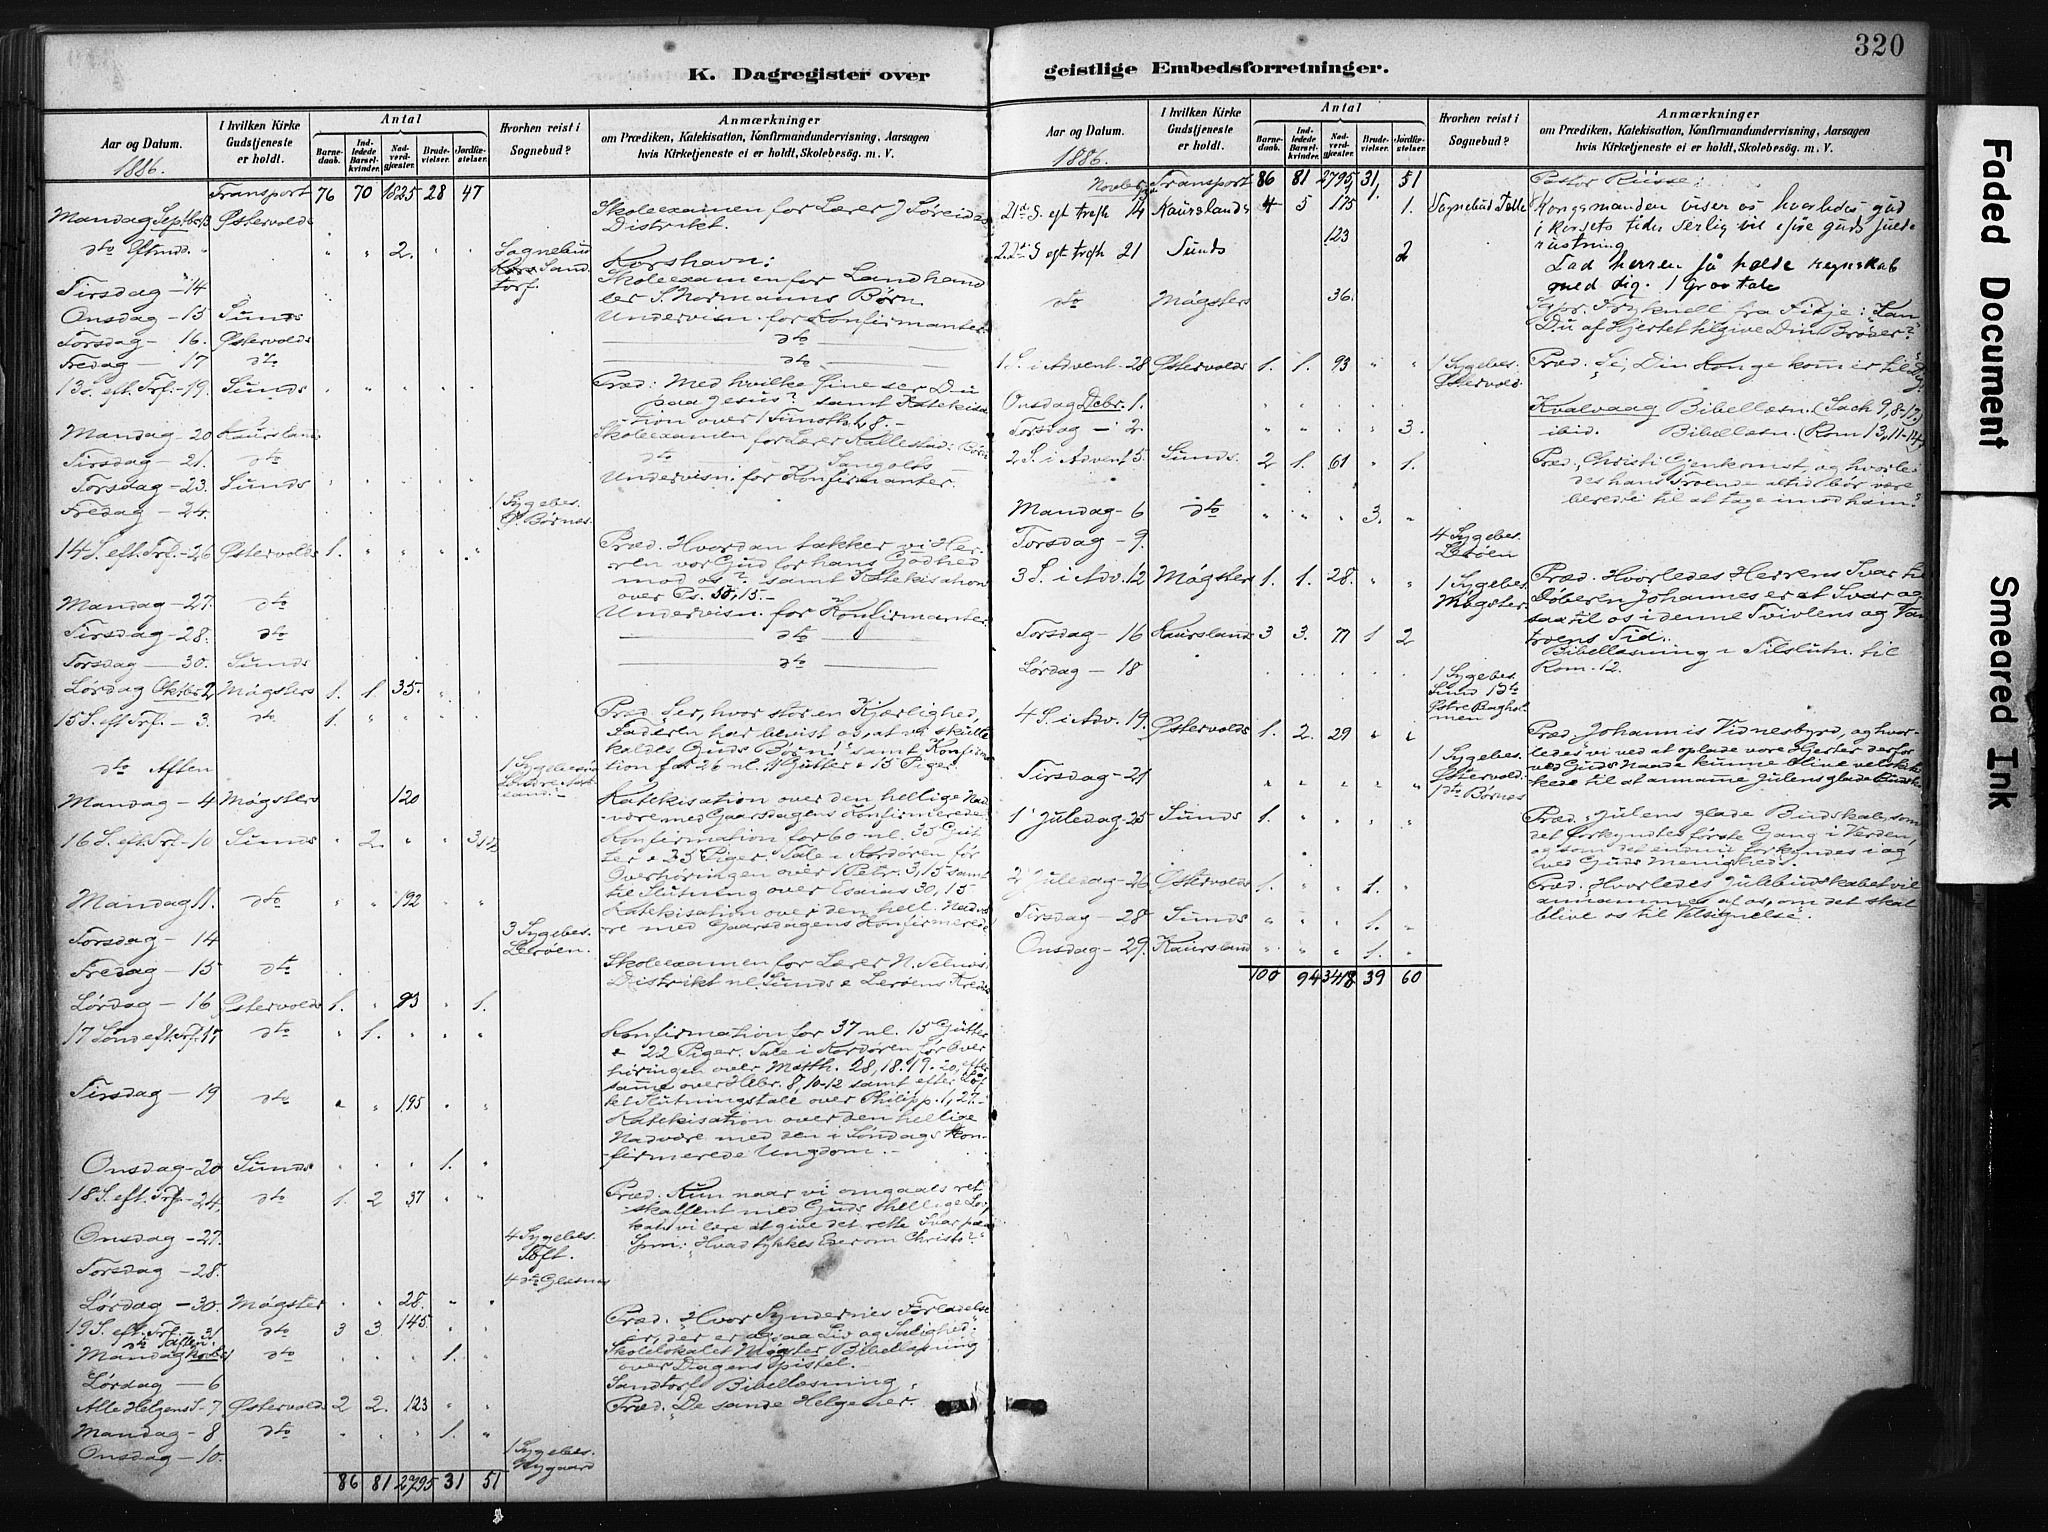 K. Dagregister over
Aar og Datum.
1886.
I hvilken Kirke Gudstjeneste er holdt.
Antal
Barnedaab.
Indledede Barselkvinder.
Nadverdgjæster.
Brudevielser.
Jordfæstelser.
Hvorhen reist i Sognebud?
Anmærkninger
om Prædiken, Katekisation, Konfirmandundervisning, Aarsagen
hvis Kirketjeneste ei er holdt, Skolebesøg. m. V.
Transport 76 70 1825 28 47
Mandag Septbr 13 Østervolds Skoleexamen for Lærer J Søreides
Distrikt.
dto Eftmd. " " 2. Sognebud Sandtorf. Korshavn:
Tirsdag - 14 Skoleexamen for Landhand
ler S. Normanns Børn
Onsdag - 15 Sunds Undervisn. for Konfirmanter
Torsdag - 16. Østervolds dto
Fredag - 17 dto dto
13 S. eft. Trf. - 19. Sunds Præd: Med hvilke Øine ser Du
paa Jesus? samt Katekisa
tion over 1 Timoth. 1, 8. -
Mandag - 20 Kaursland Skoleexamen for Lærer Kallestad: Børn
Tirsdag - 21. dto dto
Torsdag - 23. Sunds Undervisn. for Konfirmanter.
Fredag - 24. 1 Sygebes. Børnes.
14 S. eft. Trf. - 26 Østervolds 1. " " " " Præd. Hvordan takker vi Her-
ren vor Gud for hans Godhed
mod os? samt Katekisation
over Ps. 50, 15. -
Mandag - 27. dto Undervisn. for Konfirmanter
Tirsdag - 28. dto dto
Torsdag - 30. Sunds dto
Lørdag Oktbr 2 Møgsters 1. 1 35. " "
15 S. eft. Trf. - 3. dto 1. " " " Præd. Ser, hvor stor en Kjærlighed,
Faderen har bevist os, at vi skulle
kaldes Guds Børn!" samt Konfirma
tion for 26 nl. 11 Gutter & 15 Piger.
dto Aften 1 Sygebes.
Mandag - 4 Møgsters 120 Katekisation over den hellige Nad
være med Gaarsdagens Konfirmerede.
16 S. eft. Trf. - 10 Sunds " 2. " " Konfirmation for 60 nl. 35 Gut
ter & 25 Piger. Tale i Kordøren før
Overhøringen over 1 Petr. 3, 15 samt
til Slutning over Esaias 30, 15
Mandag 11. dto " " 192 " " Katekisation over den hell. Nadvæ
re med Gaarsdagens Konfirmerede
Torsdag - 14 3 Sygebes. Lerøen.
Fredag - 15 dto Skoleexamen for Lærer N. Telnes,
Distrikt nl. Sunds & Lerøens Kredse
Lørdag - 16 Østervolds 1. " 93 " 1.
17 Sønd eft. Trf. - 17 dto " 1. " " " Konfirmation for 37 nl. 15 Gutter
& 22 Piger. Tale i Kordøren før Over
høringen over Matth. 28, 18. 19. 20, efter
samme over Hebr. 8, 10-12 samt efter
Slutningstale over Philipp. 1, 27. -
Tirsdag - 19 dto " " 195 " " Katekisation over den hellige
Nadvære med den i Søndags kon-
firmerede Ungdom. -
Onsdag - 20 Sunds " " " 1. "
18 S. eft. Trf. - 24, dto 1. 2 37 " " Præd. Kun naar vi omgaaes ret
skaffent med Guds hellige Lov,
kan vi lære at give det rette Svar paa
Spm: "Hvad tykkes Eder om Christo?"
Onsdag - 27. 4 Sygebes. Toft.
Torsdag - 28. 4 dto Glesnæs
Lørdag - 30. Møgster " " 28. " "
19 S. eft. Trf. - 31 dto 3 3 145 " " Præd. "Hvor Syndernes Forladelse
er, der er ogsaa Liv og Salighed."
Mandag Novbr 1 dto " " " 1. " Skolelokalet Møgster Bibellæsning
over Dagens Epistel.
Lørdag - 6 Sandtorf Bibellæsning
Alle Helgens S. 7 Østervold 2 2. 123 " " Præd. "De sande Helgener.
Mandag - 8 dto " " " 1. "
Onsdag - 10. 1 Sygebes.
86 81 2795 31 51
320
geistlige Embedsforretninger.
Aar og Datum.
1886.
I hvilken Kirke Gudstjeneste er holdt.
Antal
Barnedaab.
Indledede Barselkvinder.
Nadverdgjæster.
Brudevielser.
Jordfæstelser.
Hvorhen reist i Sognebud?
Anmærkninger
om Prædiken, Katekisation, Konfirmandundervisning, Aarsagen
hvis Kirketjeneste ei er holdt, Skolebesøg. m. V.
Novbr Transport 86 81 2795 31 51 Pastor Riisse:
21de S. eft trefh 14 Kaurslands 4 5 175 1. Sognebud Kongsmanden viser os hvorledes gud
i korsets tider
22de S eft trefh 21 Sunds 123 2 rustning
Lad herren få holde regnskab
med dig. 1 gravtale
dto Møgsters 36. fra Fitje: "Kan
Du af Hjertet tilgive Din Broder?"
1 S. i Advent - 28 Østervolds 1. 1. 93 " " 1 Sygebes. Østervold. Præd. "Se, Din Konge kommer til Dig"
Onsdag Dcbr. 1. Kvalvaag Bibellæsn. (Sach 9, 8-12)
Torsdag - 2. " " " " 3. ibid. Bibellæsn. (Rom 13, 11-14)
2 S. i Advent 5. Sunds. 2 1. 61 " 1. Præd. "Christi Gjenkomst, og hvorle
des hans Troende altid bør være
beredne til at tage imod ham."
Mandag - 6 dto " " " 3. "
Torsdag - 9. 4 Sygebes. Lerøen
3 S. i Adv. 12 Møgsters 1. 1. 28. " " 1 Sygebes. Møgster. Præd. Hvorledes Herrens Svar til
Døberen Johannes er et Svar og
saa til os i denne Tvivlens og Van
troens Tid.
Torsdag - 16 Kaurslands 3 3. 77 1. 2 Bibellæsning i Tilslutn. til
Rom. 12.
Lørdag - 18 1 Sygebes. Sund 1 dto Østre Bagholmen
4 S. i Adv. 19. Østervolds 1. 2. 29 " " Præd. Johannis Vidnesbyrd, og hvor-
ledes vi ved at oplade vore Hjerter derfor
ved Guds Naade kunne blive velskik
kede til at anamme Julens glade Budskab
Tirsdag - 21 " " " " " 1 Sygebes. Østervold. 1 dto Børnæs
1 Juledag - 25 Sunds 1. " " " Præd. Julens glade Budskab, som
det forkyndtes første Gang i Verden,
og som det endnu forkyndes i og
ved Guds Menigheds.
2 Juledag - 26 Østervolds 1. " " 1. " Præd. Hvorledes Julebudskabet vil
annammes af os, om det skal
blive os til Velsignelse.
Tirsdag - 28 Sunds " " 1. "
Onsdag - 29. Kaursland " " " 1. "
100 94 3418 39 60
Faded Document
Smeared Ink